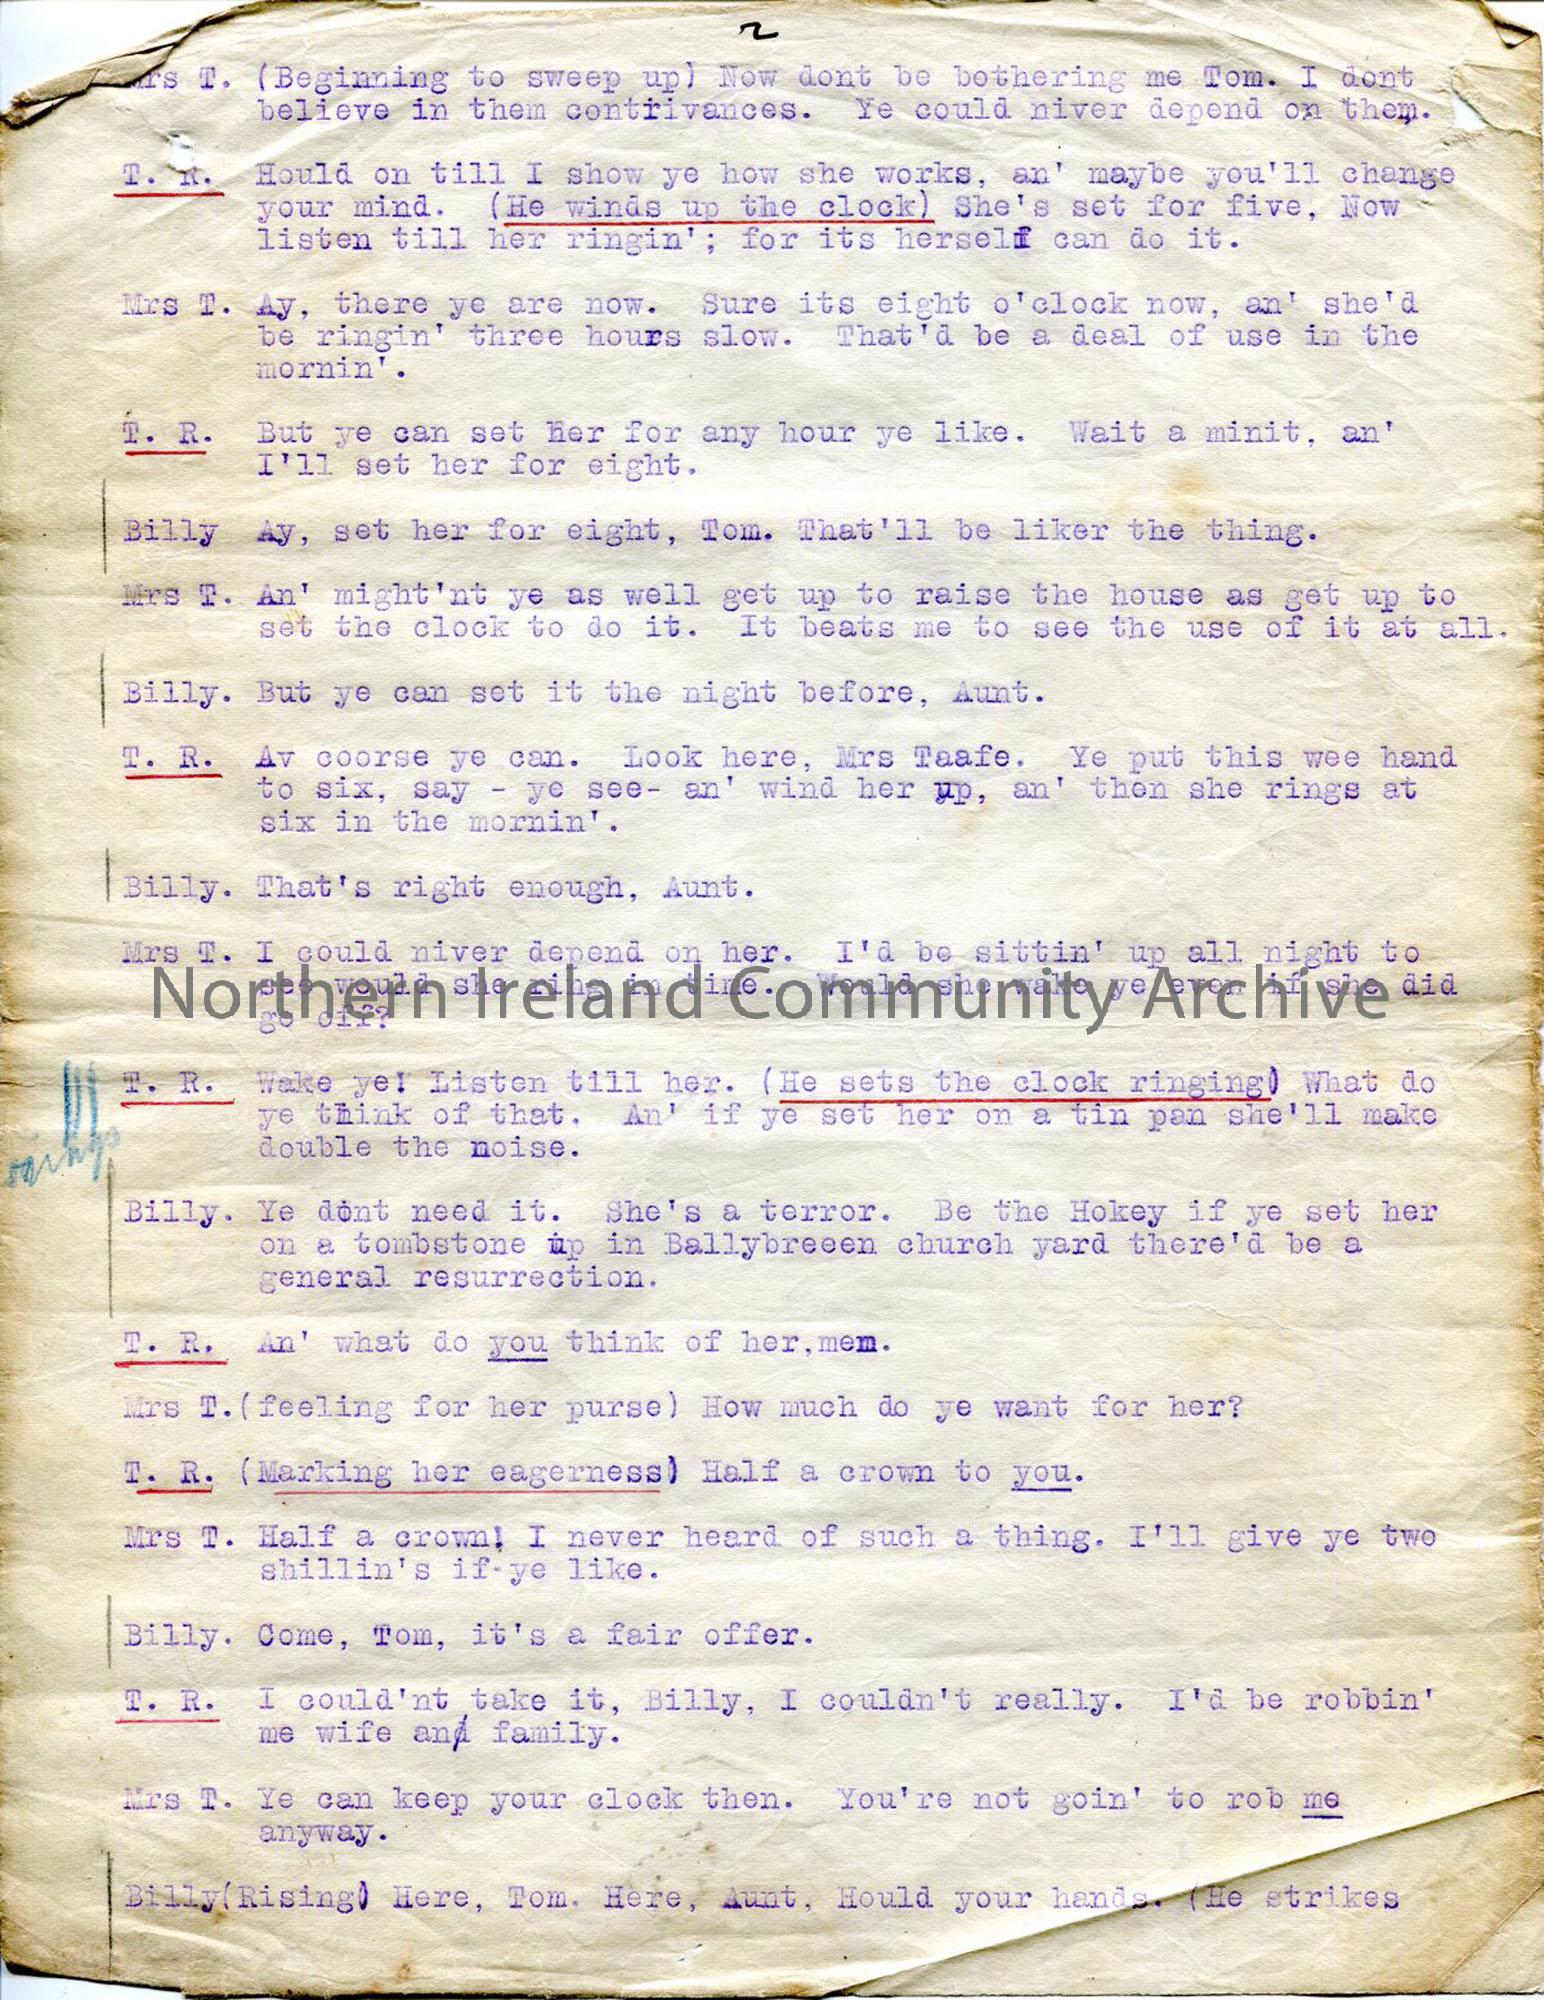 2
Mrs T. (Beginning to sweep up) Now dont be bothering me Tom. I dont
believe in them contrivances. Ye could niver depend on them.
T. R. Hould on till I show ye how she works, an' maybe you'll change
your mind. (He winds up the clock) She's set for five, Now
listen till her ringin'; for its herself can do it.
Mrs T. Ay, there ye are now. Sure its eight o'clock now, an' she'd
be ringin' three hours slow. That'd be a deal of use in the
mornin'.
T. R. But ye can set her for any hour ye like. Wait a minit, an'
I'll set her for eight.
Billy Ay, set her for eight, Tom. That'll be liker the thing.
Mrs T. An' might'nt ye as well get up to raise the house as get up to
set the clock to do it. It beats me to see the use of it at all.
Billy. But ye can set it the night before, Aunt.
T. R. Av coorse ye can. Look here, Mrs Taafe. Ye put this wee hand
to six, say - ye see- an' wind her up, an' then she rings at
six in the mornin'.
Billy. That's right enough, Aunt.
Mrs T. I could niver depend on her. I'd be sittin' up all night to
see would she ring in time. Would she wake ye even if she did
go off?
Northern Ireland Community Archive
T. R. Wake ye! Listen till her. (He sets the clock ringing) What do
ye think of that. An' if ye set her on a tin pan she'll make
double the noise.
Billy. Ye dont need it. She's a terror. Be the Hokey if ye set her
on a tombstone up in Ballybreeen church yard there'd be a
general resurrection.
T. R. An' what do you think of her,mem.
Mrs T.(feeling for her purse) How much do ye want for her?
T. R. (Marking her eagerness) Half a crown to you.
Mrs T. Half a crown! I never heard of such a thing. I'll give ye two
shillin's if-ye like.
Billy. Come, Tom, it's a fair offer.
T. R. I could'nt take it, Billy, I couldn't really. I'd be robbin'
me wife and family.
Mrs T. Ye can keep your clock then. You're not goin' to rob me
anyway.
Billy(Rising) Here, Tom. Here, Aunt, Hould your hands. (He strikes